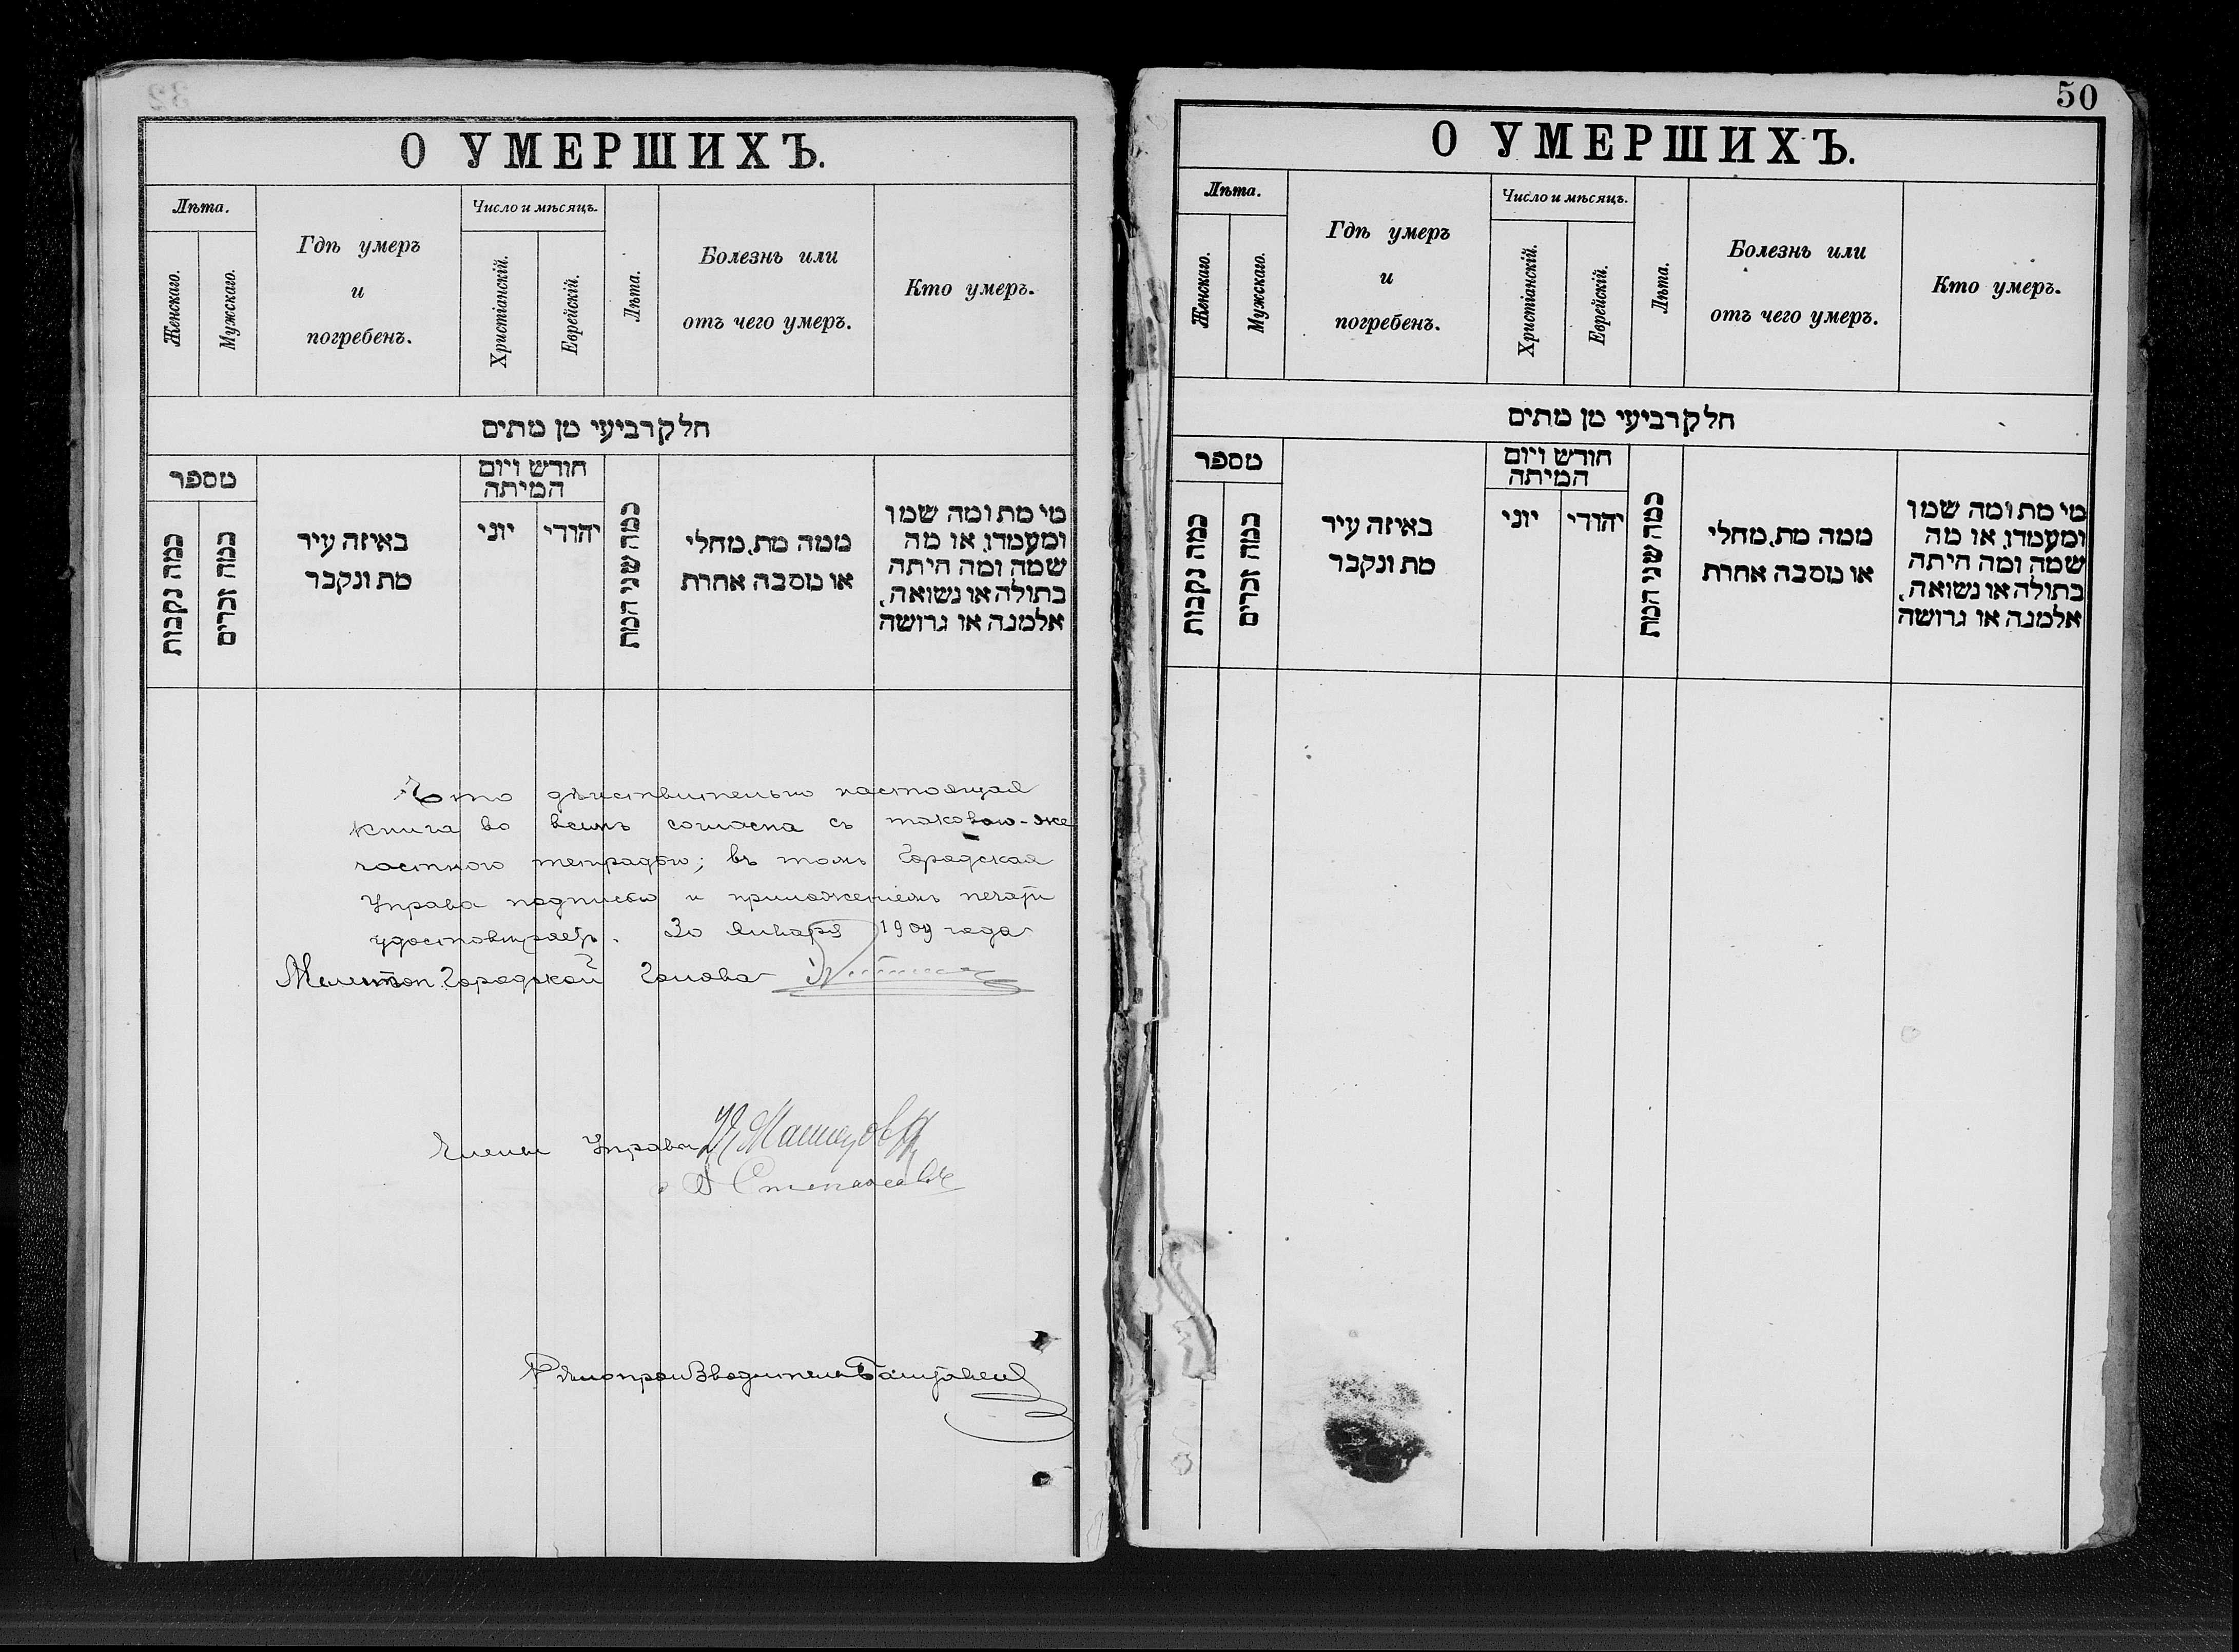 О УМЕРШИХЪ.
Лѣта.
Женскаго.
Мужскаго.
Гдѣ умеръ
и
погребенъ.
Число и мѣсяцъ.
Христіанскій.
Еврейскій.
Лѣта.
Болезнь или
отъ чего умеръ.
Кто умеръ.
חלק רביעי מן מתים
מספר
כמה נקבות
כמה זכרים
באיזה עיר
מת ונקבר
חודש ויום
המיתה
יוני
יהודי
כמה שני המת
ממה מת, מחלי
או מסבה אחרת
מי מת ומה שמו
ומעמדו, או מה
שמה ומה היתה
בתולה או נשואה,
אלמנה או גרושה
Что дѣйствительно настоящая
книга во всемъ согласна съ таковою-же
частною тетрадью; въ томъ Городская
Управа подписью и приложеніемъ печати
удостовѣряетъ. 30 Января 1909 года
Мелитоп. Городской Голова
Члены Управы
Дѣлопроизводитель
50
О УМЕРШИХЪ.
Лѣта.
Женскаго.
Мужскаго.
Гдѣ умеръ
и
погребенъ.
Число и мѣсяцъ.
Христіанскій.
Еврейскій.
Лѣта.
Болезнь или
отъ чего умеръ.
Кто умеръ.
חלק רביעי מן מתים
מספר
כמה נקבות
כמה זכרים
באיזה עיר
מת ונקבר
חודש ויום
המיתה
יוני
יהודי
כמה שני המת
ממה מת, מחלי
או מסבה אחרת
מי מת ומה שמו
ומעמדו, או מה
שמה ומה היתה
בתולה או נשואה,
אלמנה או גרושה